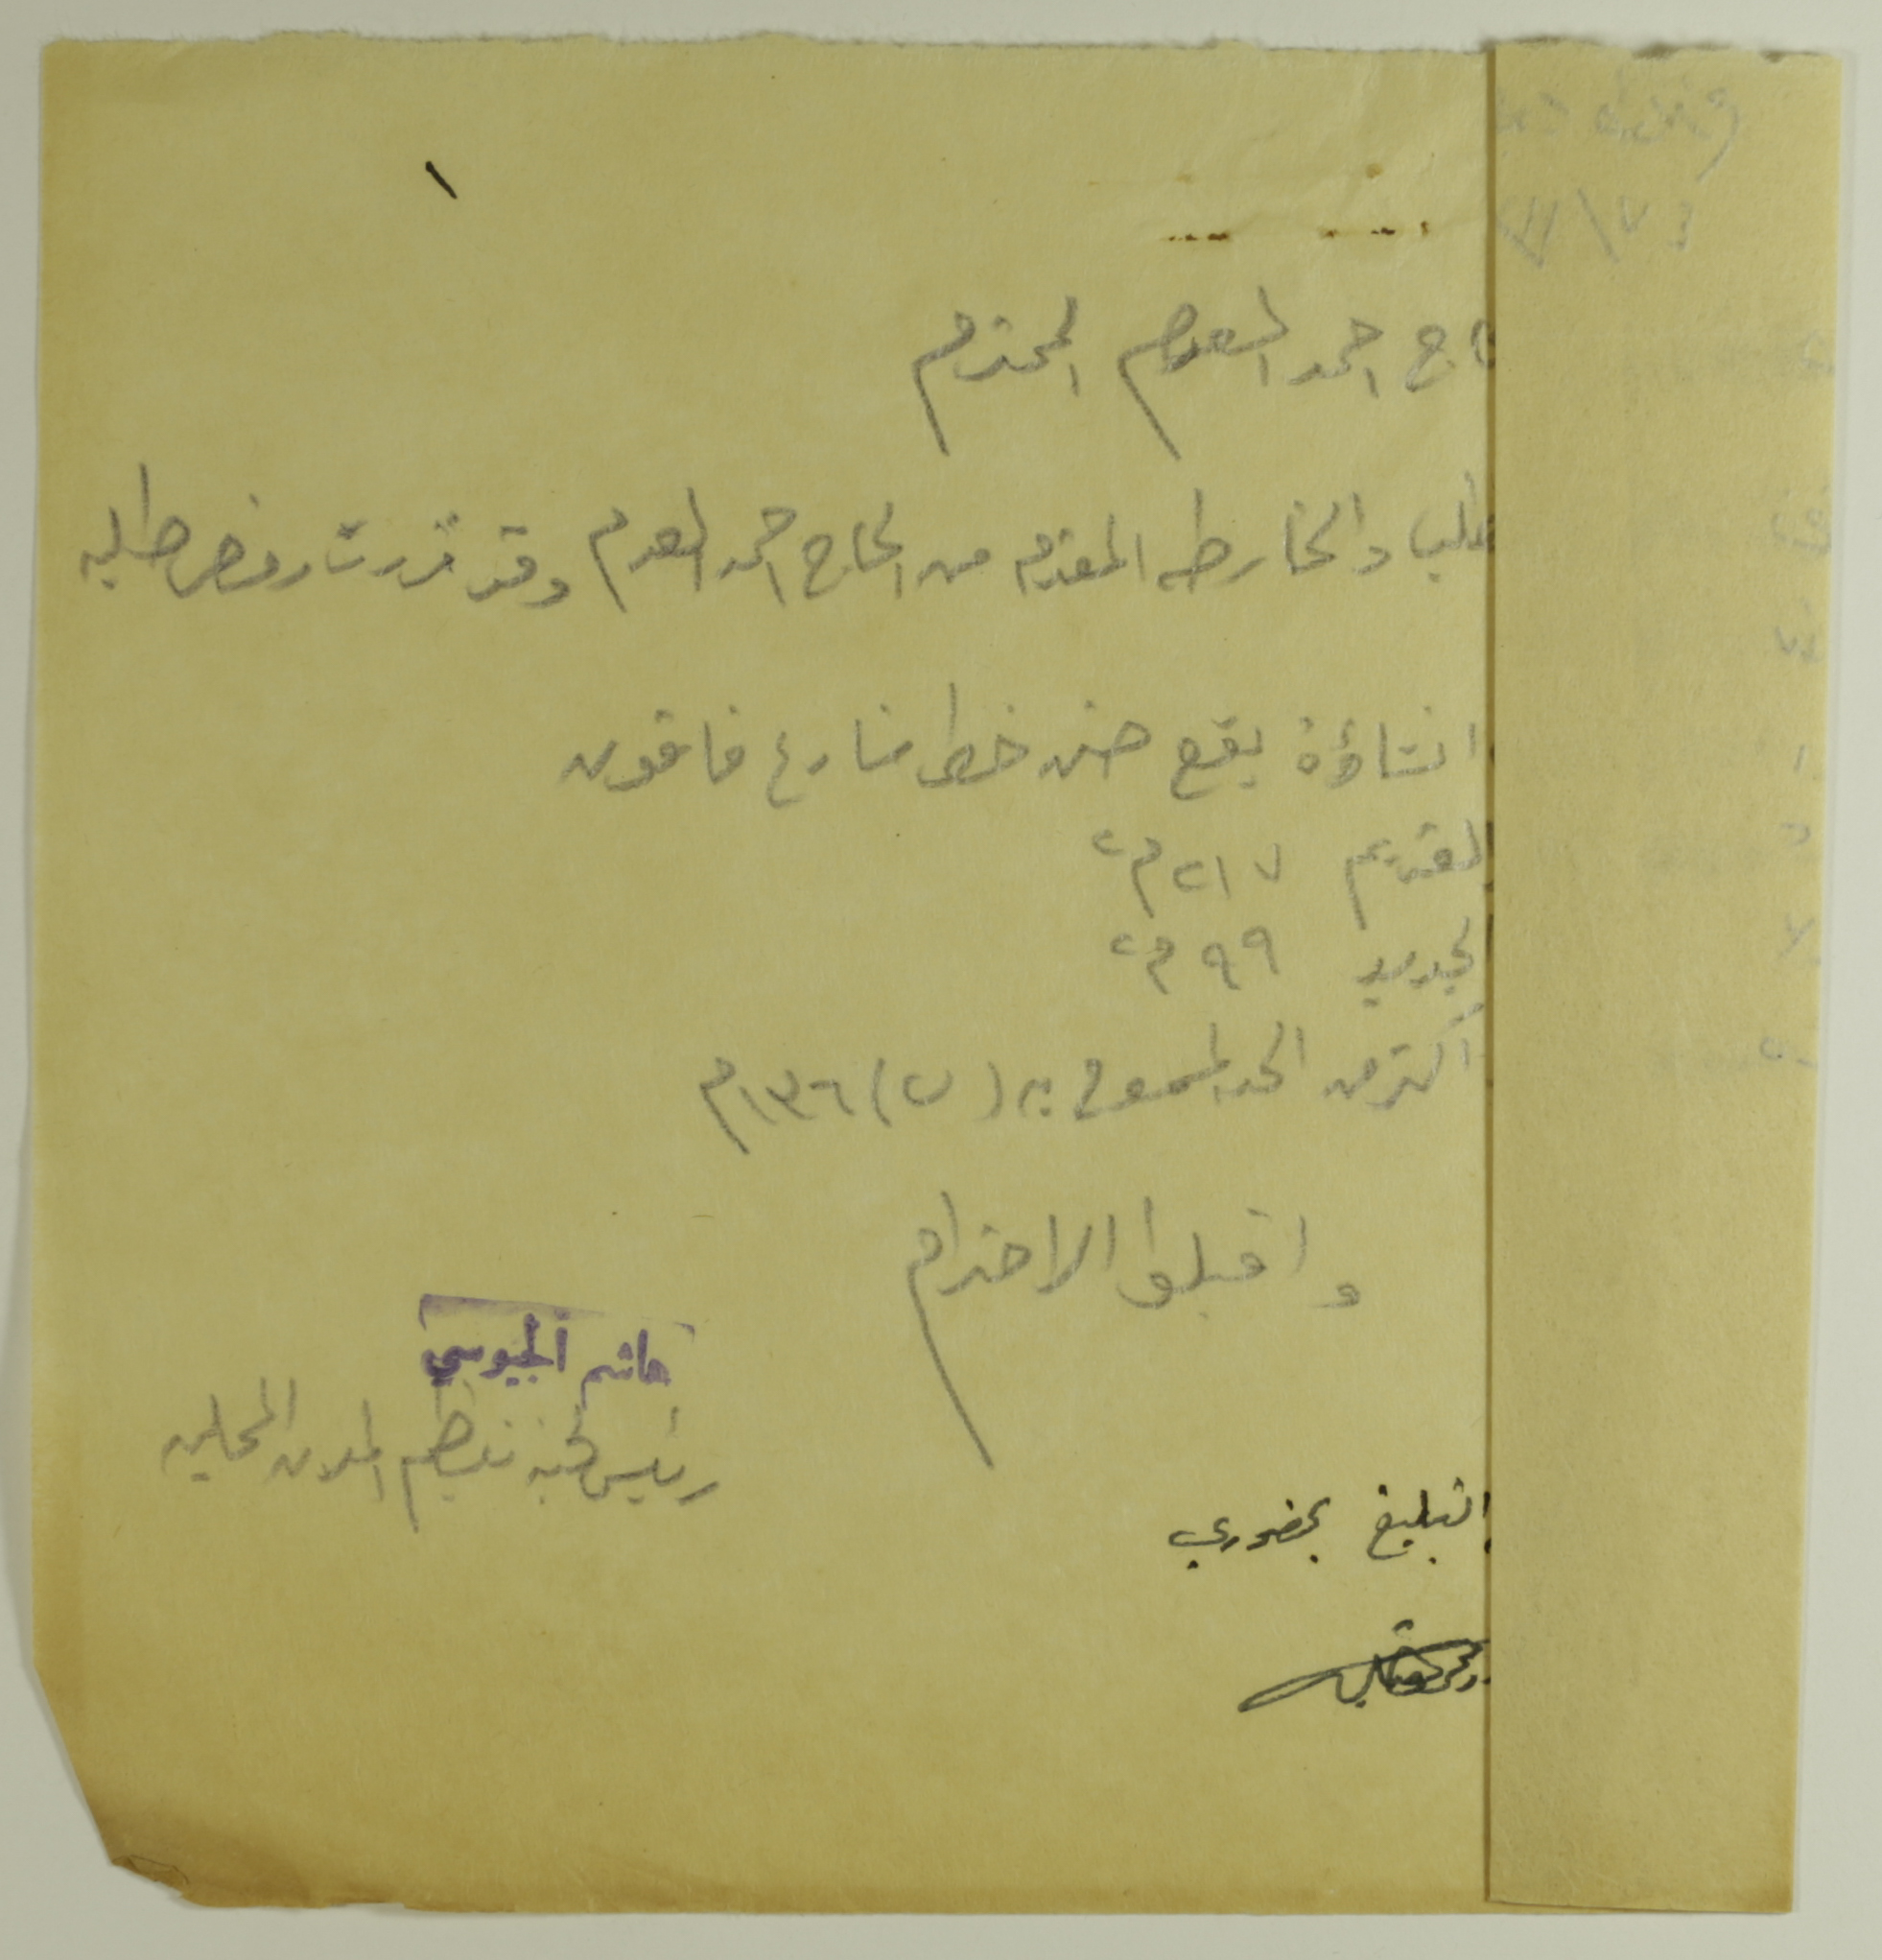 اج احمد السعدم المحترم
طلب والخارطه المقدم من الحاج احمد السعدم وقد قررت رفض طلبه
انشاؤه يقع ضمن خط شارع قانون
القديم ٢١٧ م٢
الجديد ٩٩ م٢
اكثر من الحد المسموح به (٢) ١٣٦م
واقبلوا الاحترام
هاشم الجيوسي
رئيس لجنة تنظيم المدن المحليه
التبليغ بحضوري